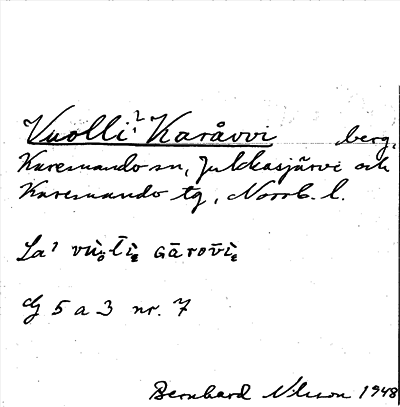 Vuolli? Karåvvi berg,
Karesuando sn, Jukkasjärvi och
Karesuando tg, Norrb. l.
La?
G 5 a 3 nr. 7
Bernhard Nilsson 1948